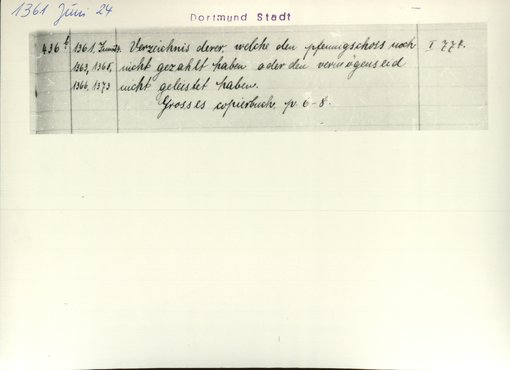 1361 Juni 24
Dortmund Stadt
436 f 1361. Juni 24. Verzeichnis derer, welche den pfennigschoss noch I 778.
1363, 1368, nicht gezahlt haben oder den vermögenseid
1366, 1373 nicht geleistet haben.
Grosses copierbuch p. 6-8.